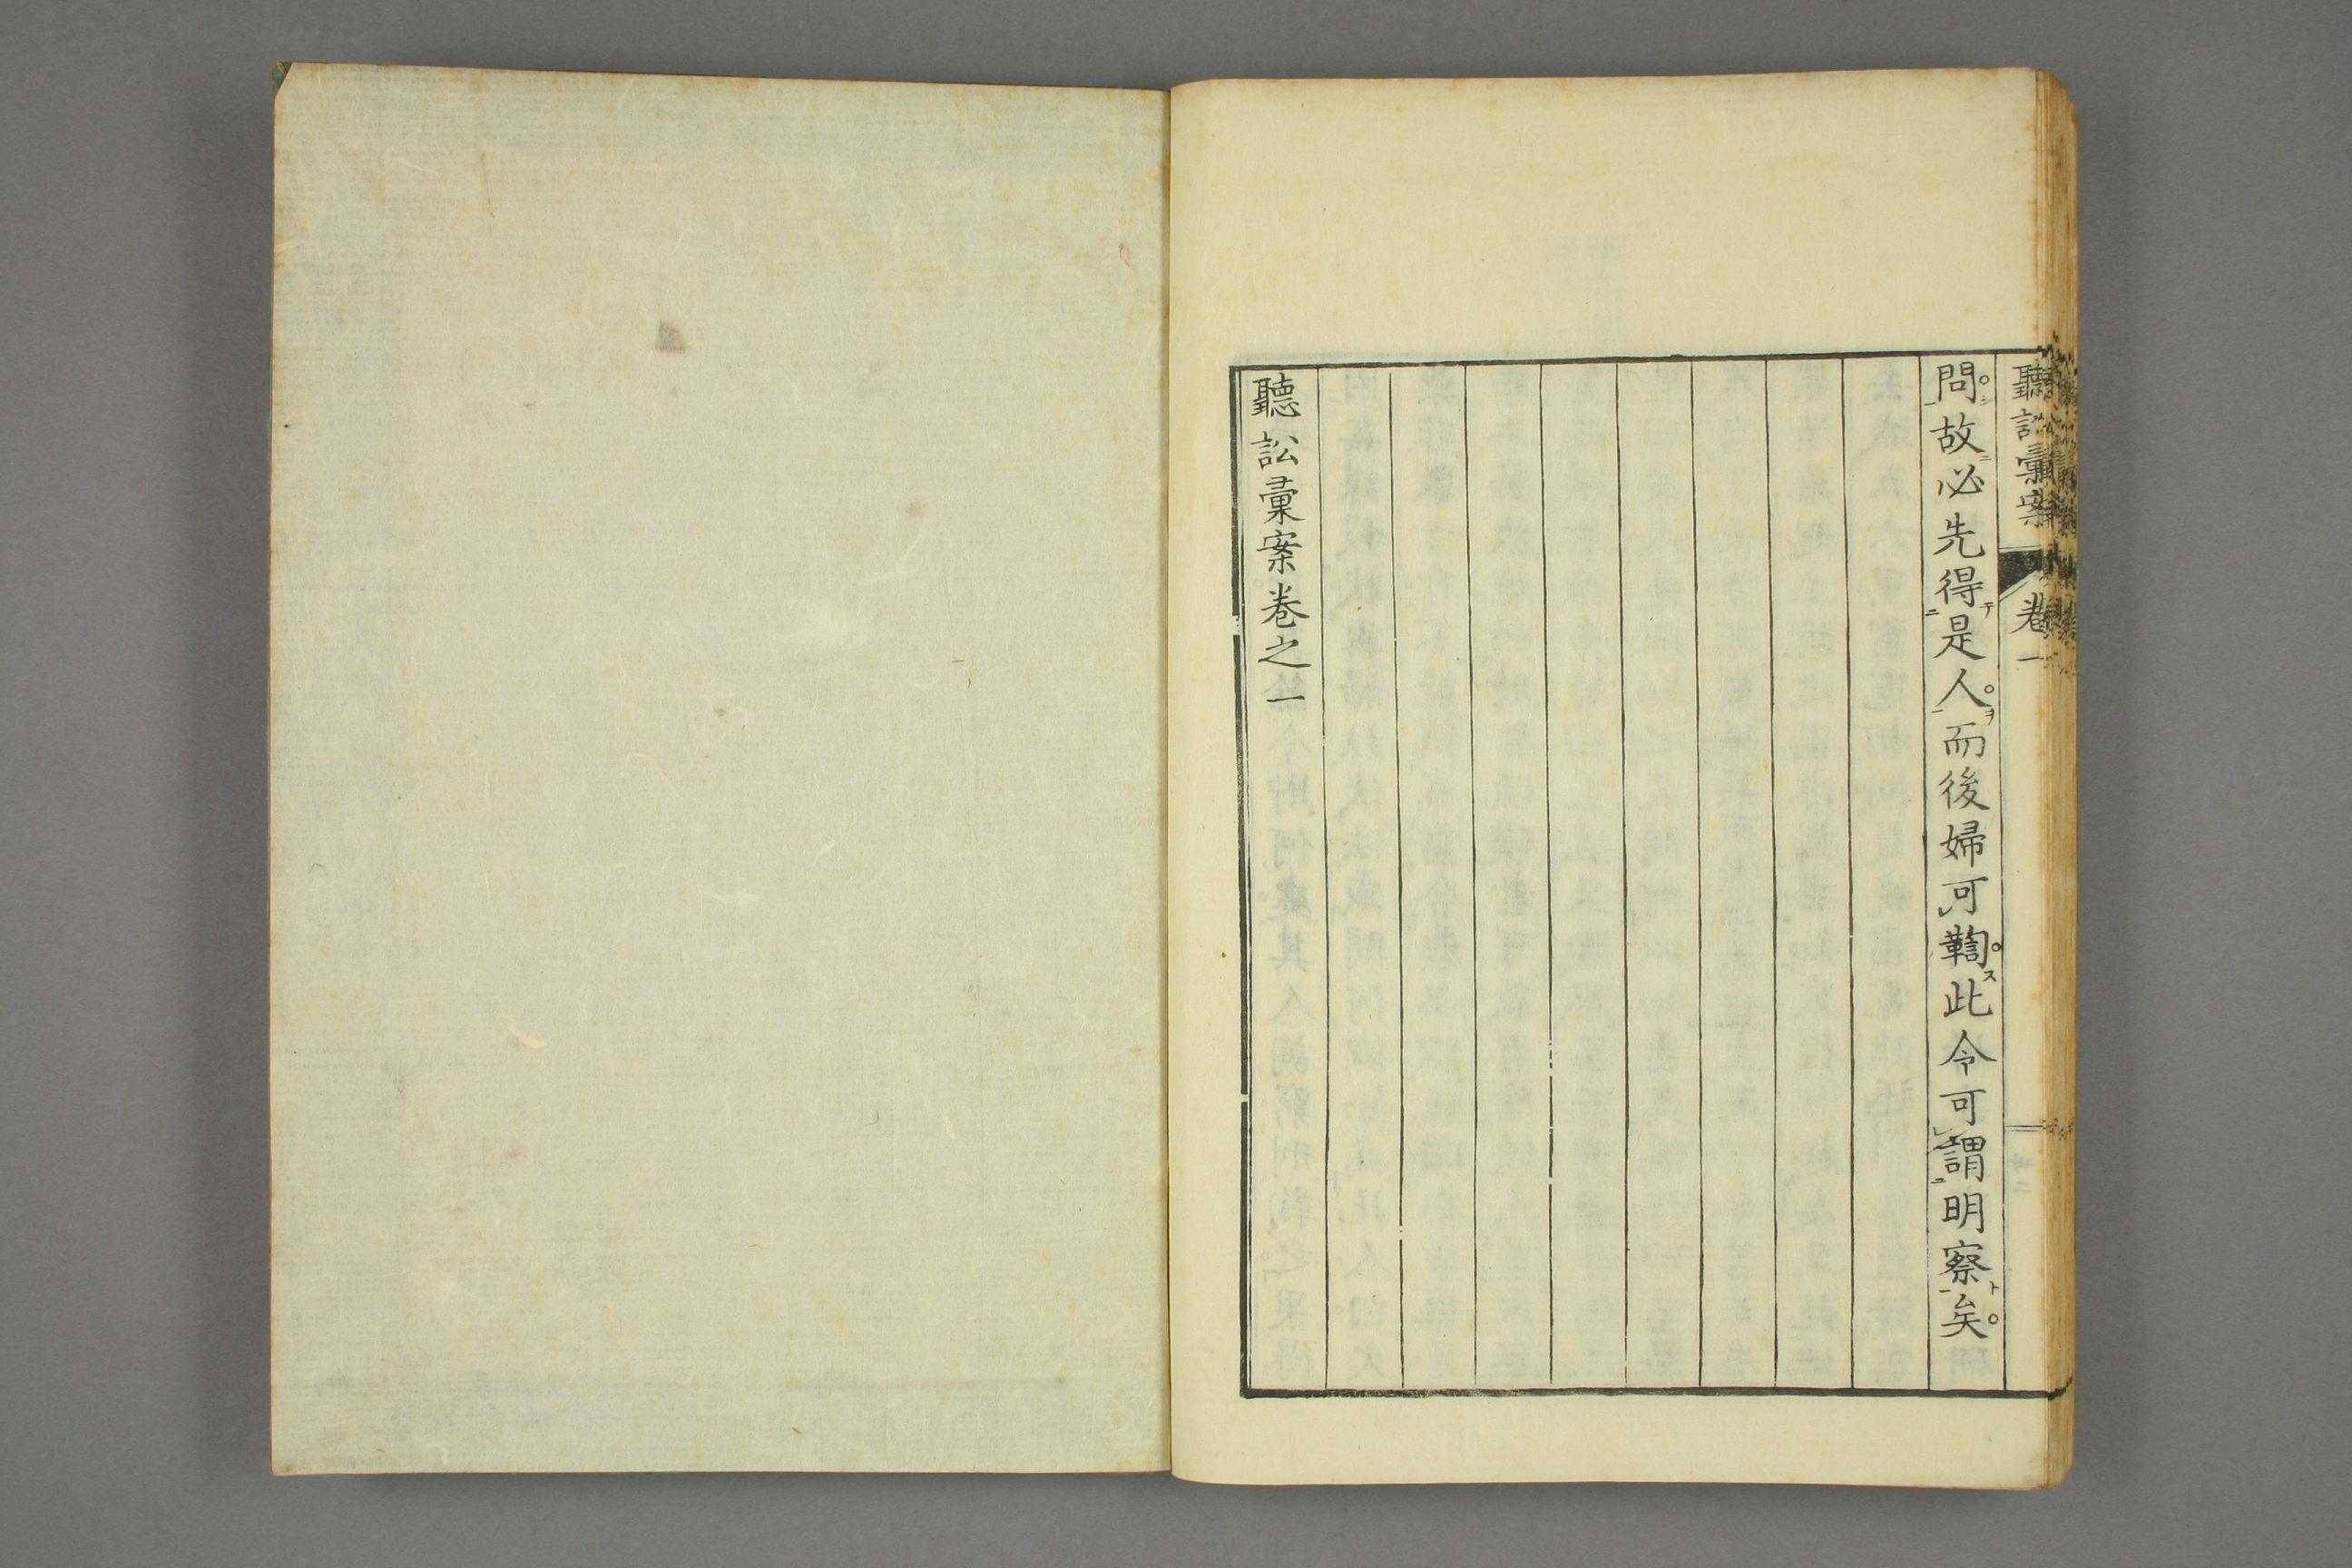 聽訟彙案 卷一
問故必先得是人而後婦可鞫此令可謂明察矣
聽訟彙案卷之一